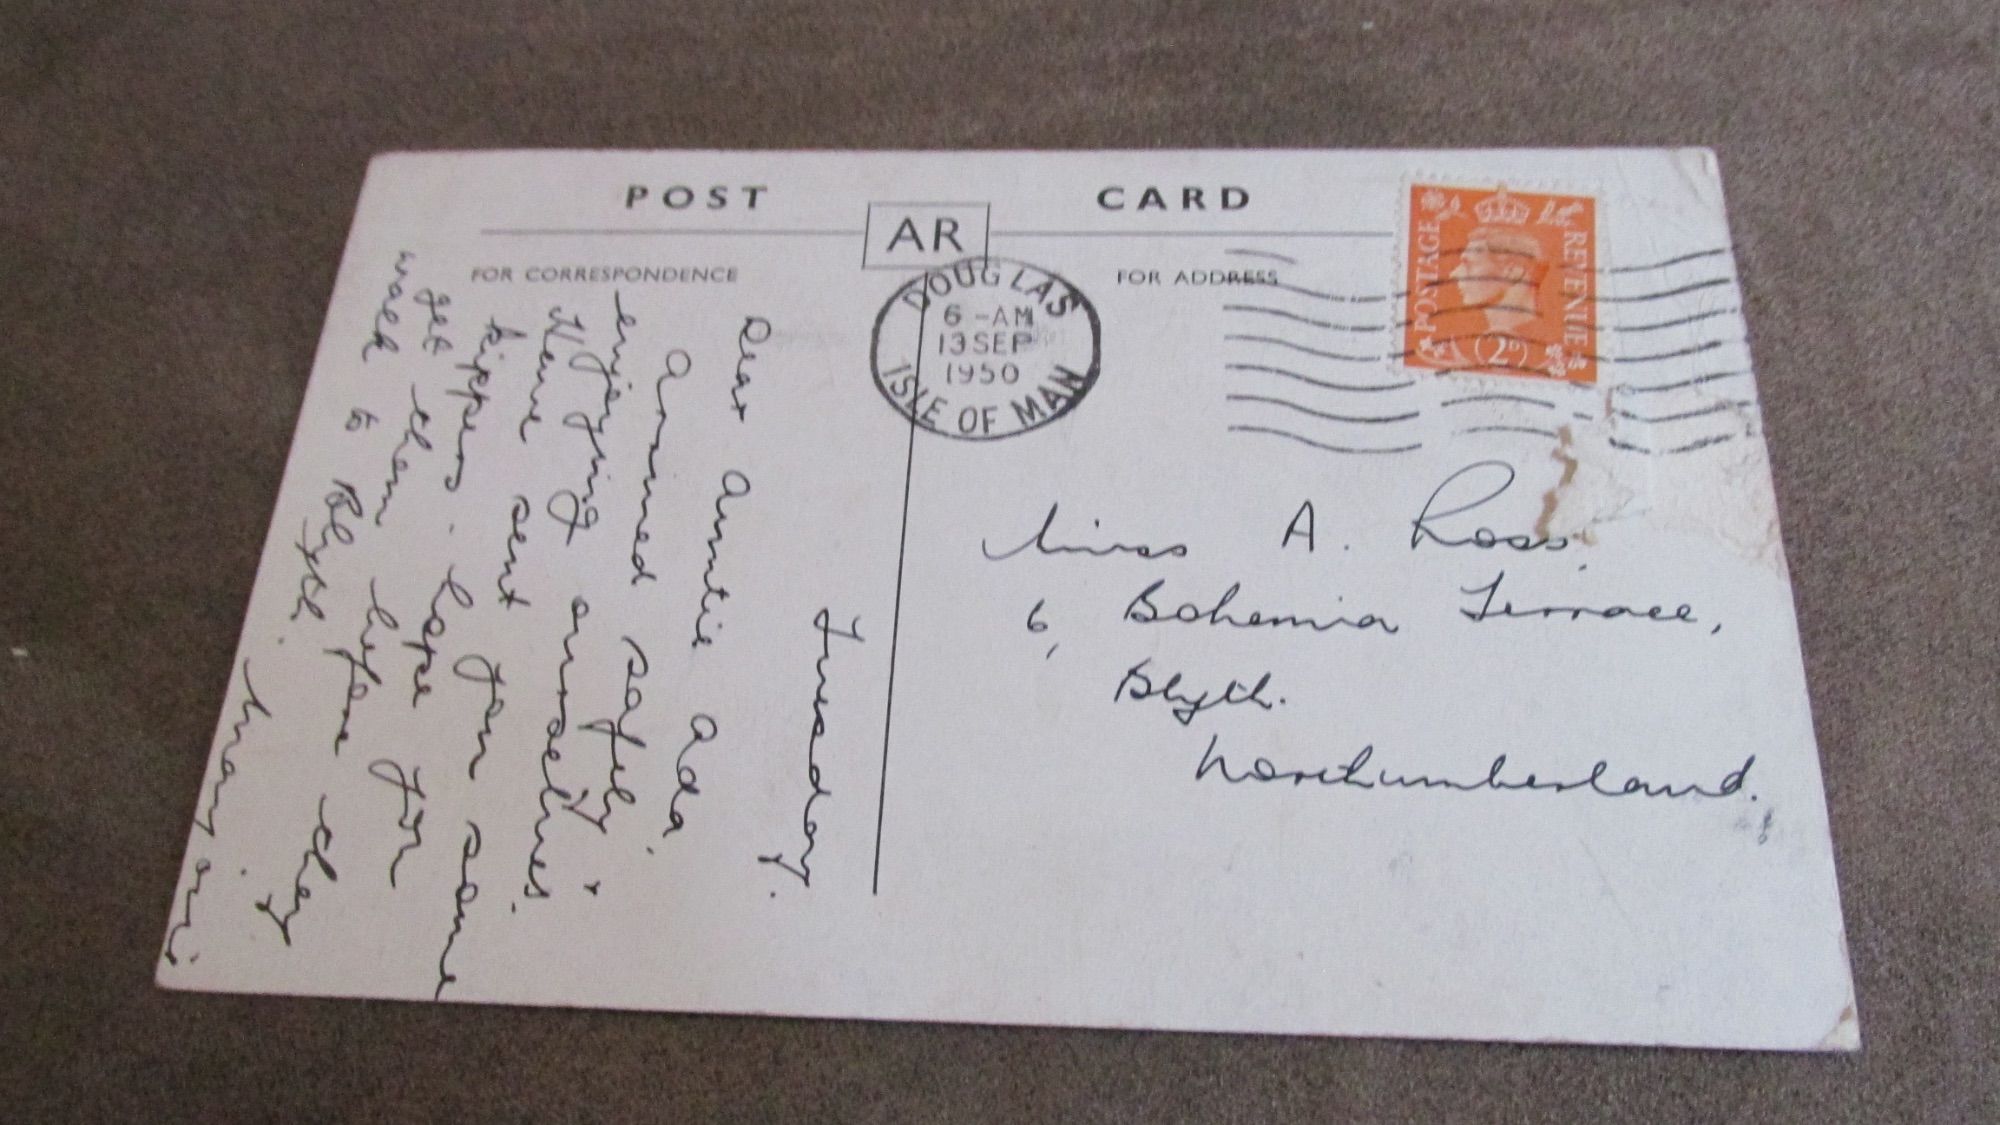 POST CARD
AR
FOR CORRESPONDENCE
FOR ADDRESS
DOUGLAS
6 -AM
13 SEP
1950
ISLE OF MAN
POSTAGE
REVENUE
2D
Tuesday.
Dear Auntie Ada.
Arrived safely &
enjoying ourselves.
Have sent you some
kippers. hope for
get them before they
walk to Blyth.
Miss A. Ross,
6, Bohemia Terrace,
Blyth.
Northumberland.